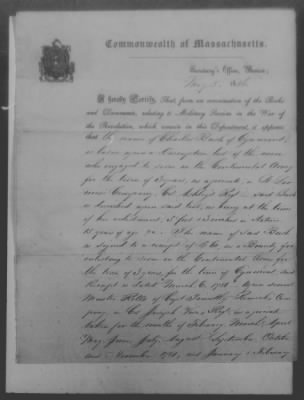 Commonwealth of Massachusetts.
Secretary's Office, Boston,
May
I hereby Certify, That, from an examination of the Books
and Documents, relating to Military Service in the War of
the Revolution, which remain in this Department, it appears
that the name of Charles Bush of
is borne upon a Descriptive list of the men
who engaged to serve in the Continental Army
for the term of 3 years, as appears, in
Company, Col. Reg't. Said Bush
is described upon said list, as being at the time
of his enlistment, 5 feet inches in stature
18 years of age &c. The name of said Bush
is signed to a receipt of as a Bounty, for
enlisting to serve in the Continental Army for
the term of 3 years, for the town of and
Receipt is dated March 6, 1781. Upon several
Muster Rolls of Capt. Com-
pany, in Col. Joseph Reg't. as
taken for the months of February, March, April
May, June, July, August, September, October
and November 1781, and January & February